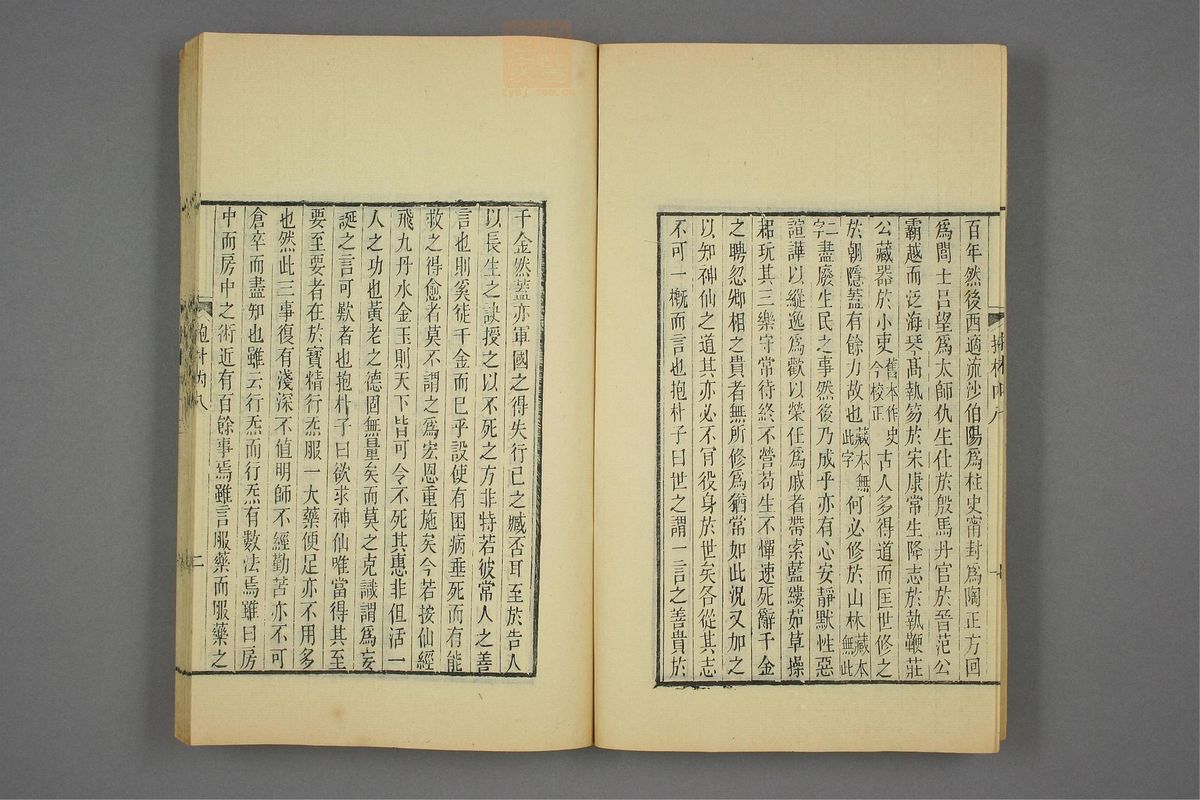 百年然後西適流沙伯陽爲柱史甯封爲陶正方回
爲閭士呂望爲太師仇生仕於殷馬丹官於晉范公
霸越而泛海琴高執笏於宋康常生降志於執鞭莊
公藏器於小吏舊本作史今校正古人多得道而匡世修之
於朝隱蓋有餘力故也藏本無此字何必修於山林藏本無此
二字盡廢生民之事然後乃成乎亦有心安靜默性惡
諠譁以縱逸爲歡以榮任爲戚者帶索藍縷茹草操
耜玩其三樂守常待終不營苟生不憚速死辭千金
之聘忽卿相之貴者無所修爲猶常如此況又加之
以知神仙之道其亦必不肎役身於世矣各從其志
不可一槪而言也抱朴子曰世之謂一言之善貴於
抱朴內八
千金然蓋亦軍國之得失行己之臧否耳至於告人
以長生之訣授之以不死之方非特若彼常人之善
言也則奚徒千金而已乎設使有困病垂死而有能
救之得愈者莫不謂之爲宏恩重施矣今若按仙經
飛九丹水金玉則天下皆可令不死其惠非但活一
人之功也黃老之德固無量矣而莫之克識謂爲妄
誕之言可歎者也抱朴子曰欲求神仙唯當得其至
要至要者在於寶精行炁服一大藥便足亦不用多
也然此三事復有淺深不值明師不經勤苦亦不可
倉卒而盡知也雖云行炁而行炁有數法焉雖曰房
中而房中之術近有百餘事焉雖言服藥而服藥之
抱朴內八
二